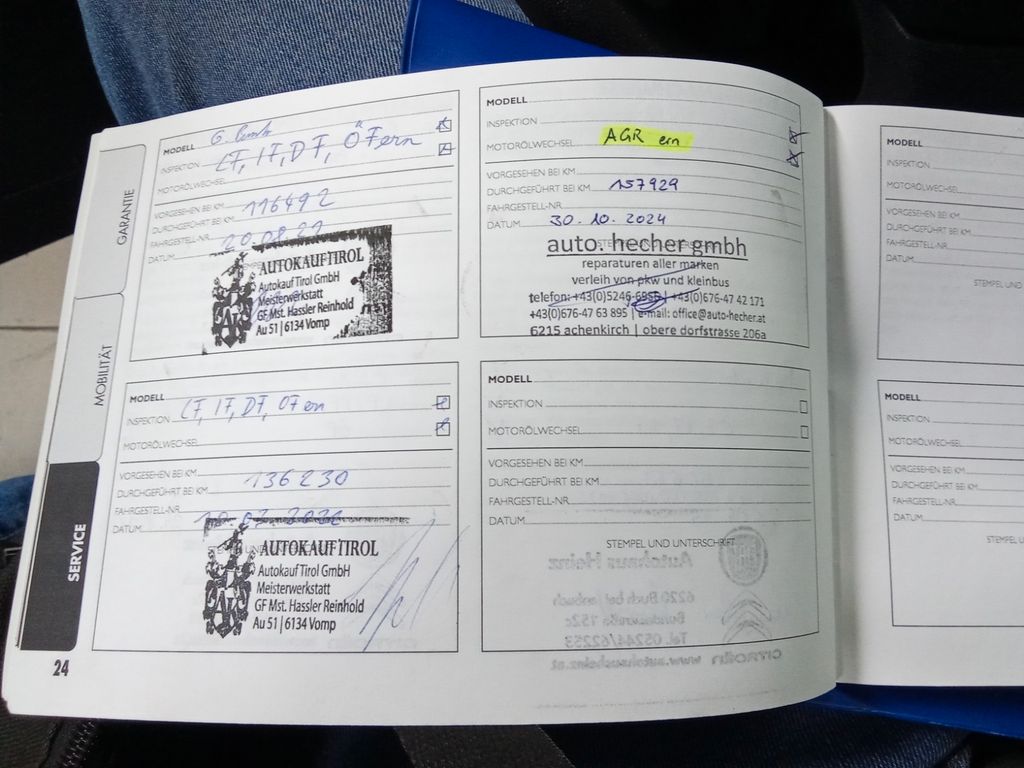 GARANTIE
MOBILITÄT
SERVICE
24
MODELL
INSPEKTION LF, IF, DF, ÖF ern
MOTORÖLWECHSEL
VORGESEHEN BEI KM
DURCHGEFÜHRT BEI KM 116492
FAHRGESTELL-NR.
DATUM
AUTOKAUF TIROL
Autokauf Tirol GmbH
Meisterwerkstatt
GF Mst. Hassler Reinhold
Au 51 | 6134 Vomp
MODELL
INSPEKTION LF, IF, DF, ÖF ern
MOTORÖLWECHSEL
VORGESEHEN BEI KM
DURCHGEFÜHRT BEI KM 136230
FAHRGESTELL-NR.
DATUM
AUTOKAUF TIROL
Autokauf Tirol GmbH
Meisterwerkstatt
GF Mst. Hassler Reinhold
Au 51 | 6134 Vomp
MODELL
INSPEKTION
MOTORÖLWECHSEL AGR ern
VORGESEHEN BEI KM
DURCHGEFÜHRT BEI KM 157929
FAHRGESTELL-NR.
DATUM 30.10.2024
auto. hecher gmbh
reparaturen aller marken
verleih von pkw und kleinbus
telefon: +43(0)5246- | +43(0)676-47 42 171
+43(0)676-47 63 895 | e-mail: office@auto-hecher.at
6215 achenkirch | obere dorfstrasse 206a
MODELL
INSPEKTION
MOTORÖLWECHSEL
VORGESEHEN BEI KM
DURCHGEFÜHRT BEI KM
FAHRGESTELL-NR.
DATUM
STEMPEL UND UNTERSCHRIFT
MODELL
INSPEKTION
MOTORÖLWECHSEL
VORGESEHEN BEI KM
DURCHGEFÜHRT BEI KM
FAHRGESTELL-NR.
DATUM
STEMPEL UND
MODELL
INSPEKTION
MOTORÖLWECHSEL
VORGESEHEN BEI KM
DURCHGEFÜHRT BEI KM
FAHRGESTELL-NR.
DATUM
STEMPEL U